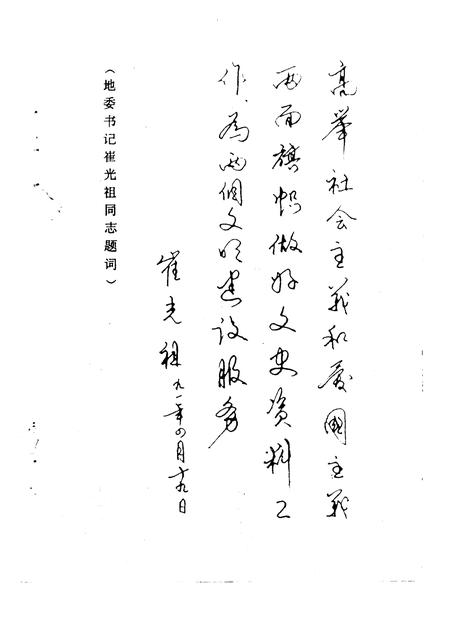 高举社会主义和爱国主义
两面旗帜做好文史资料工
作，為两個文明建设服务
崔光祖 九一年四月十九日
（地委书记崔光祖同志题词）